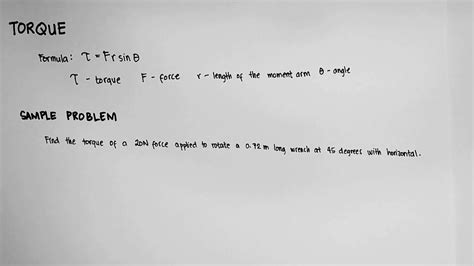 TORQUE
Formula: τ = Fr sin θ
τ - torque F - force r - length of the moment arm θ - angle
SAMPLE PROBLEM
Find the torque of a 20N force applied to rotate a 0.72 m long wrench at 45 degrees with horizontal.